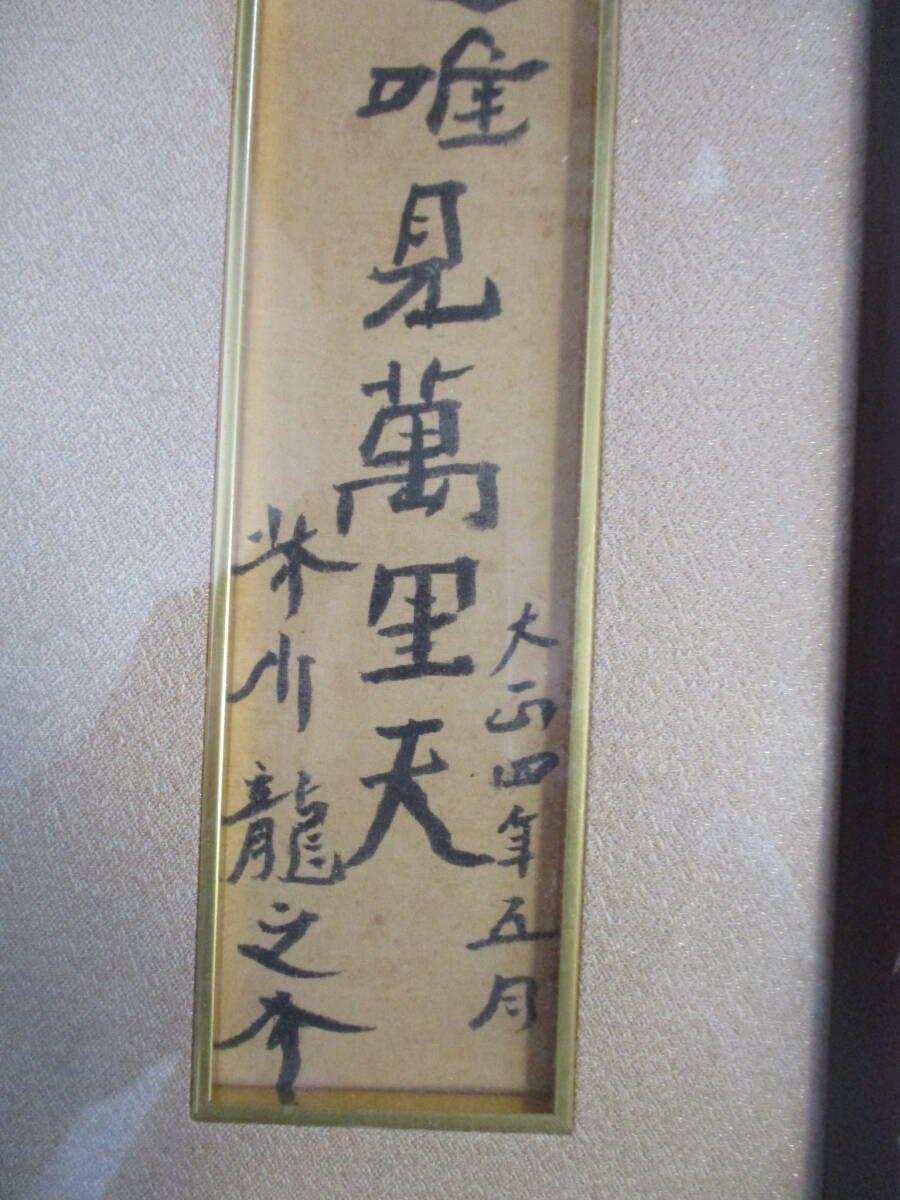 大正四年五月
唯見萬里天
芥川龍之介